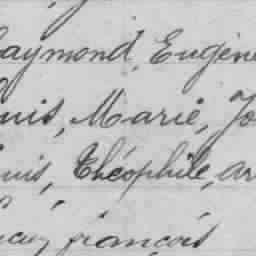 Raymond, Eugène
Louis, Marie, Jo
Louis, Théophile, ar
françois